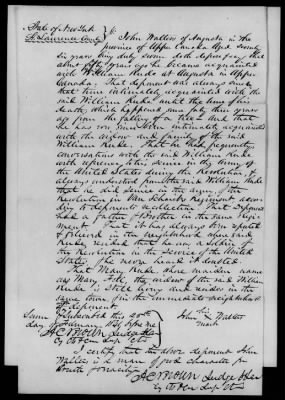 State of New York
St. Lawrence County } ss
John Walters of Augusta in the
province of Upper Canada aged seventy
six years being duly sworn doth depose & say that
about fifty years ago he became acquainted
with William Rude at Augusta in Upper
Canada. That deponent was always since
that time intimately acquainted with the
said William until the time of his
death, which happened some forty three years
ago from the falling of a tree – and that
he has ever since been intimately acquainted
with the widow and family of the said
William. That he had frequently
conversations with the said William
with reference to his service in the Army of
the United States during the Revolution, &
always understood from the said William
that he did service in the army of the
Revolution in Van Schaick Regiment accor-
ding to deponents recollection & that deponent
had a father & brother in the same Regi-
ment. That it has always been reputed
& believed in the neighborhood where said
resided that he was a Soldier of
the Revolution in the service of the United
States, & he never heard it doubted.
That Mary whose maiden name
was Mary, the widow of the said William
is still living and resides in the
same town, & in the immediate neighborhood
of deponent
Subscribed this 20th
day of January, before me
his
John X Walters
mark
A C Brown Judge
I certify that the above deponent John
Walters is a man of good character for
truth & veracity
A C Brown Judge